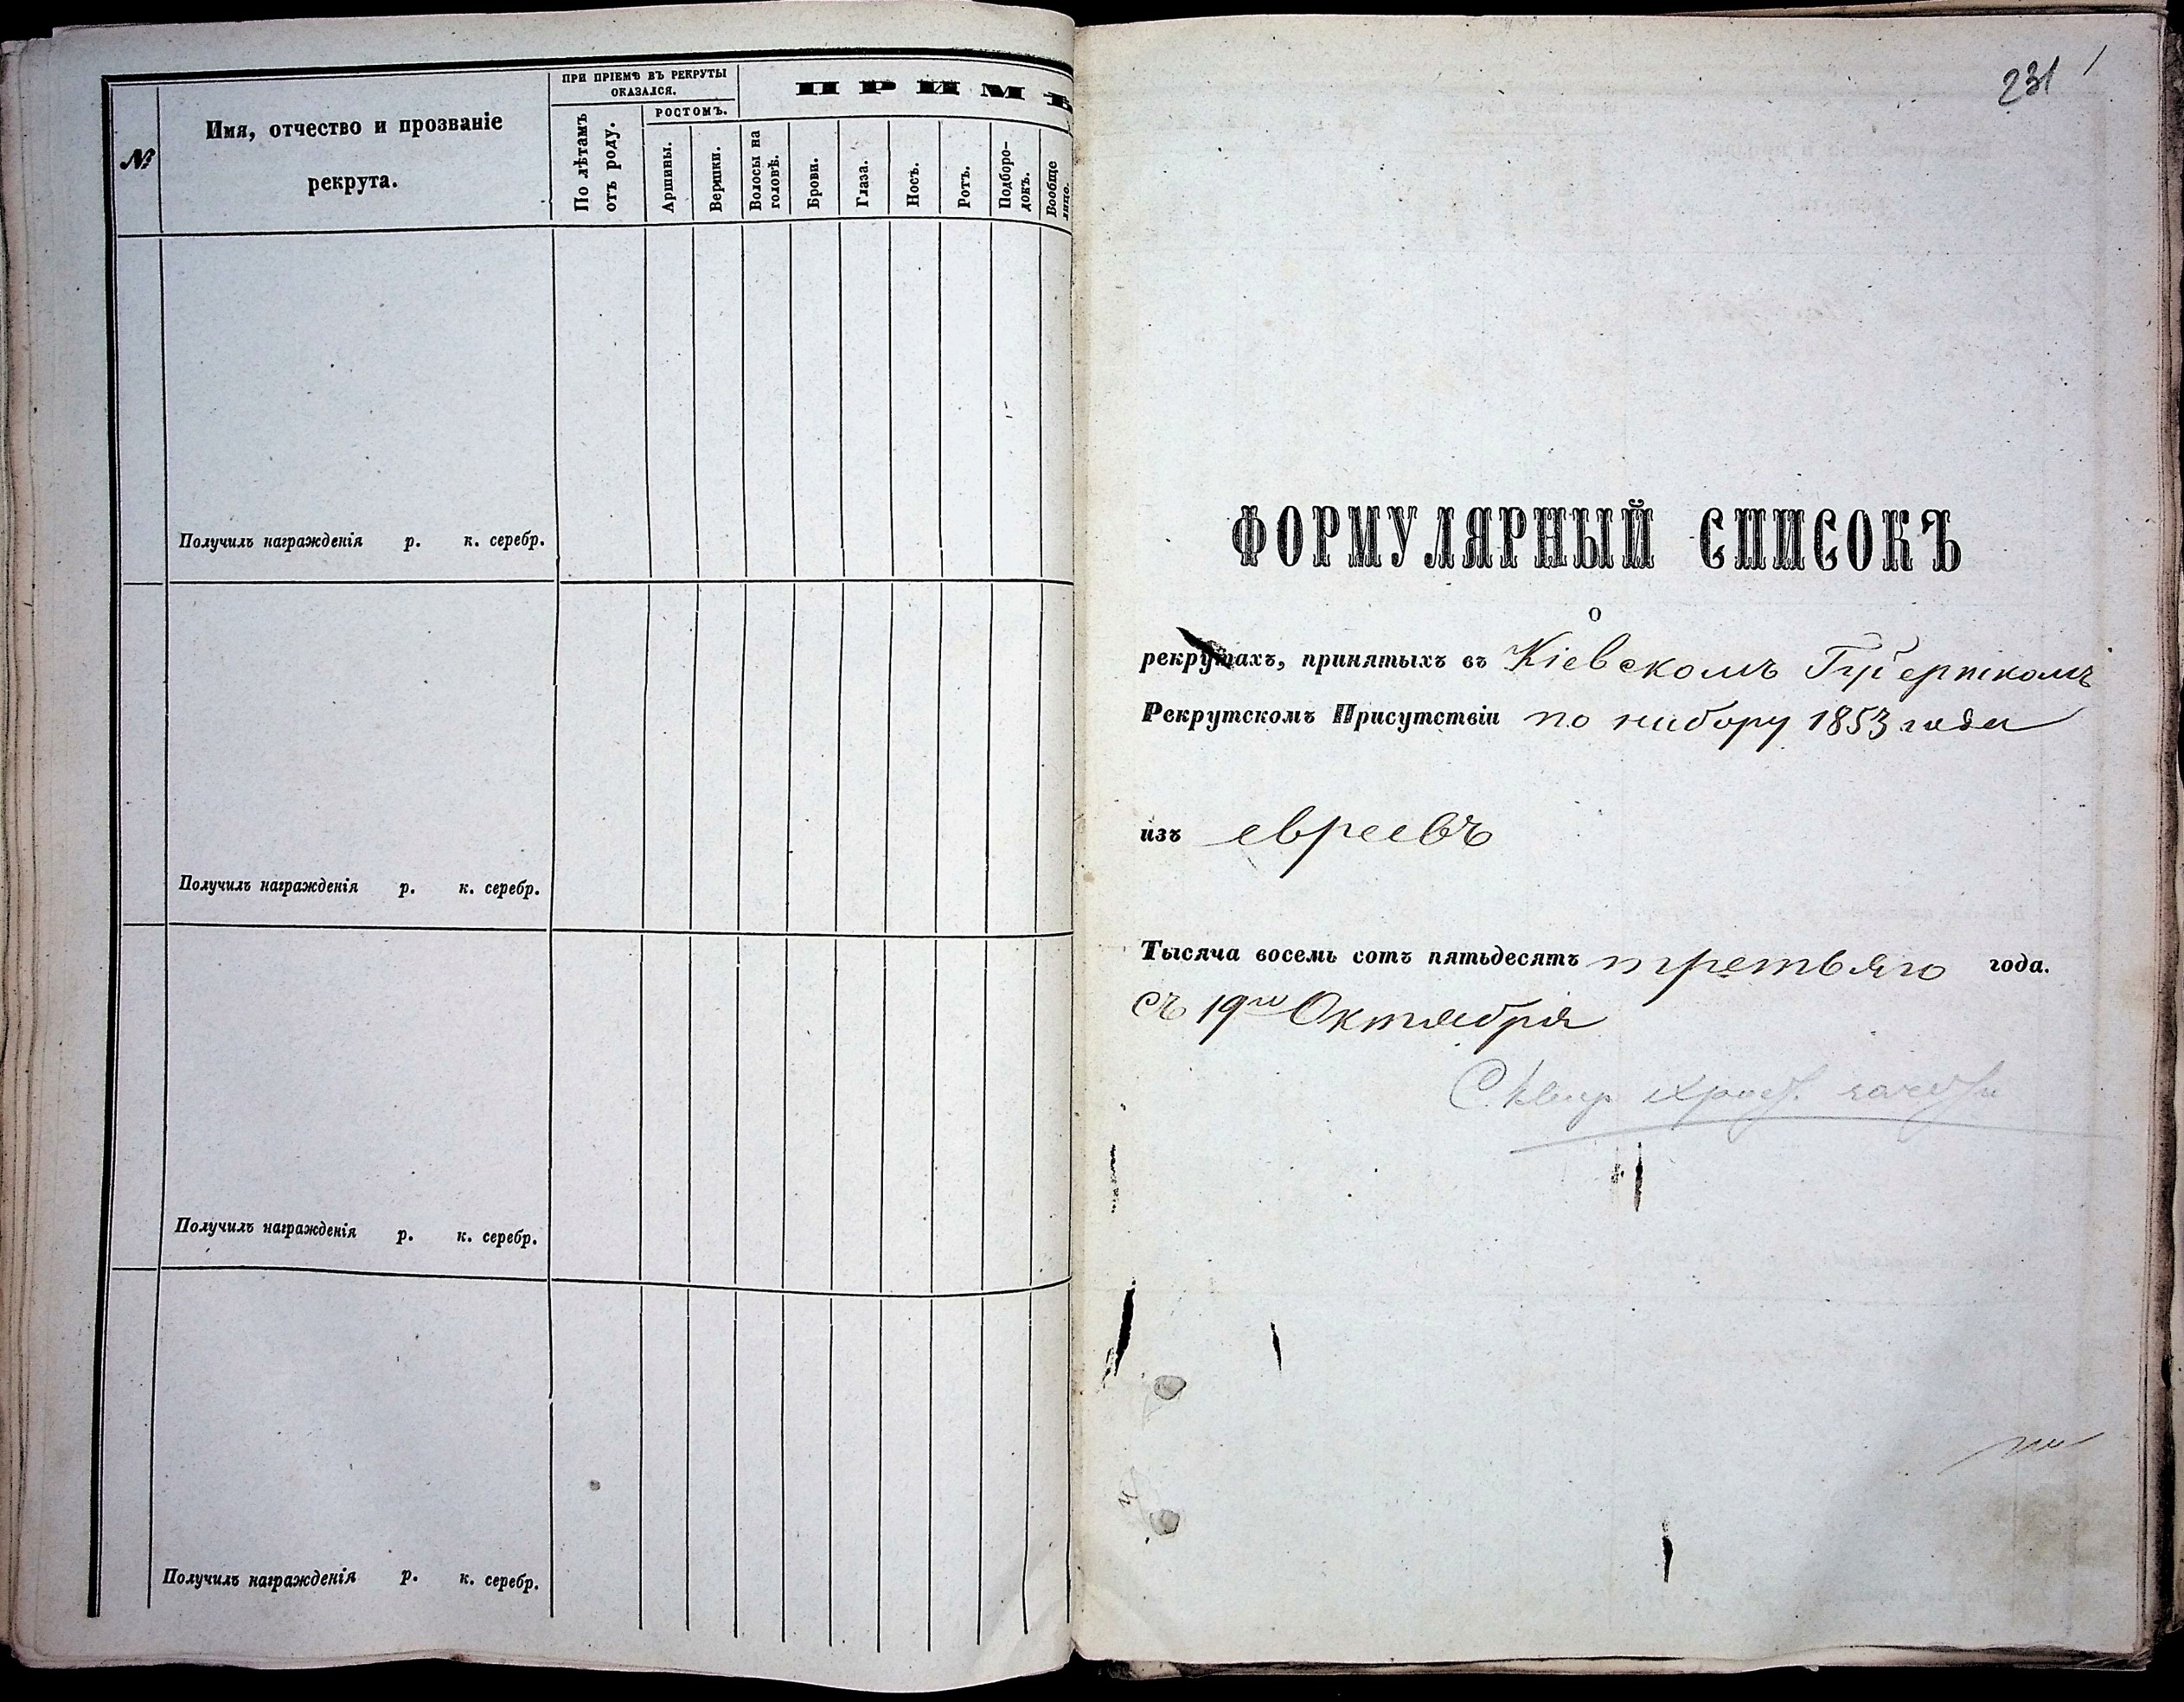 №
Имя, отчество и прозваніе
рекрута.
ПРИ ПРІЕМѢ ВЪ РЕКРУТЫ
ОКАЗАЛСЯ.
По лѣтамъ
отъ роду.
РОСТОМЪ.
Аршины.
Вершки.
ПРИМѢ
Волосы на
головѣ.
Брови.
Глаза.
Носъ.
Ротъ.
Подборо-
докъ.
Вообще
лицо.
Получилъ награжденія р. к. серебр.
Получилъ награжденія р. к. серебр.
Получилъ награжденія р. к. серебр.
Получилъ награжденія р. к. серебр.
231
ФОРМУЛЯРНЫЙ СПИСОКЪ
О
рекрутахъ, принятыхъ въ Кіевскомъ Губернскомъ
Рекрутскомъ Присутствіи по набору 1853 года
изъ евреевъ
Тысяча восемь сотъ пятьдесятъ третьяго года.
Съ 19го Октября